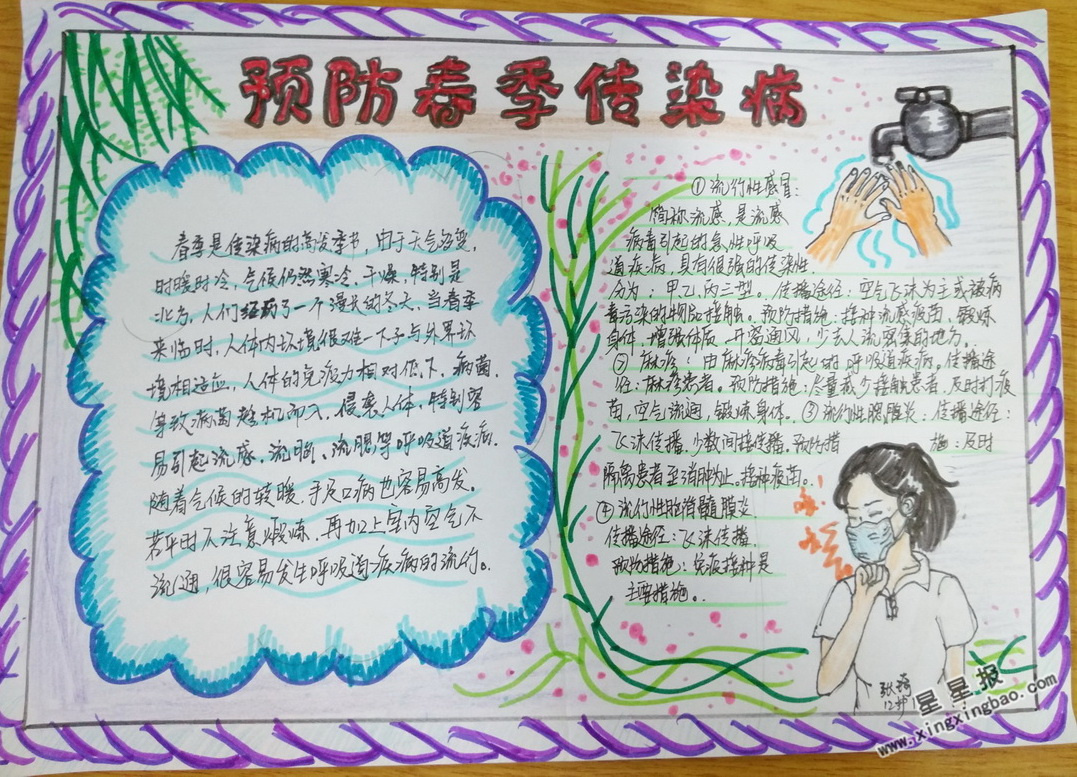 预防春季传染病
春季是传染病的高发季节，由于天气多变，
时暖时冷，气候仍然寒冷、干燥，特别是
北方，人们经历了一个漫长的冬天，当春季
来临时，人体内环境很难一下子与外界环
境相适应，人体的免疫力相对低下，病菌，
导致病菌趁机而入，侵袭人体，特别容
易引起流感、流脑、流腮等呼吸道疾病.
随着气候的转暖，手足口病也容易高发。
若平时不注意煅炼，再加上室内空气不
流通，很容易发生呼吸道疾病的流行。
①流行性感冒：
简称流感，是流感
病毒引起的急性呼吸
道疾病，具有很强的传染性.
分为：甲乙丙三型。传播途径：空气飞沫为主或被病
毒污染的物品接触。预防措施：接种流感疫苗，锻炼
身体，增强体质，开窗通风，少去人流密集的地方。
②麻疹：由麻疹病毒引起的呼吸道疾病，传播途
径：麻疹患者。预防措施：尽量减少接触患者，及时打疫
苗，空气流通，锻炼身体。③流行性腮腺炎：传播途径：
飞沫传播，少数间接传播，预防措施：及时
隔离患者至消肿为止。接种疫苗。
④流行性脑脊髓膜炎
传播途径：飞沫传播
预防措施：免疫接种是
主要措施。
张琦
12岁
星星报
www.xingxingbao.com